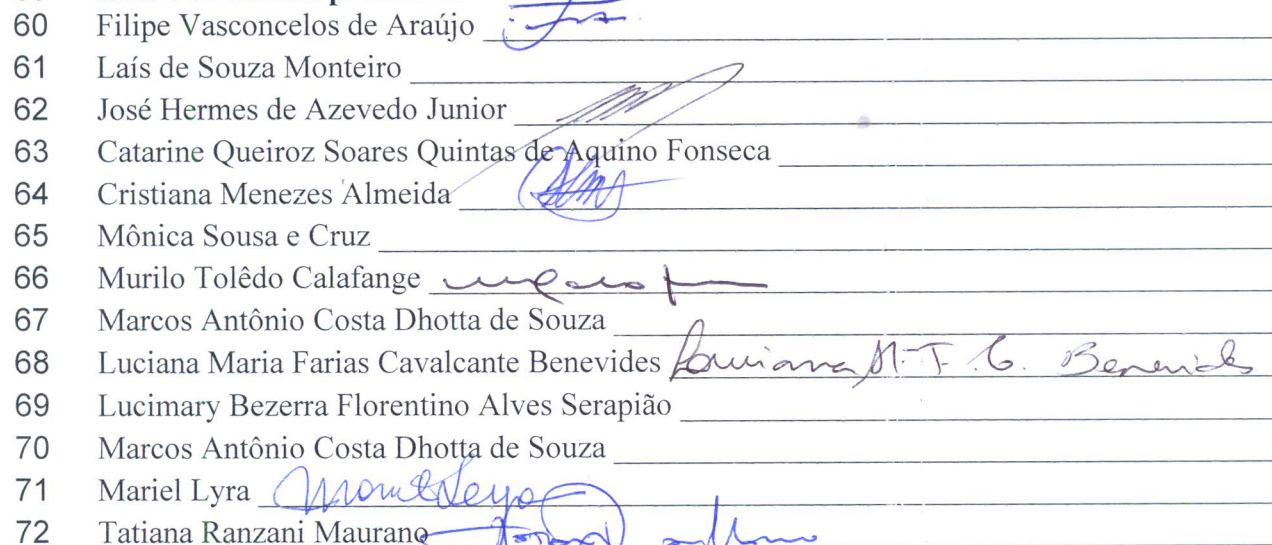 60 Filipe Vasconcelos de Araújo
61 Laís de Souza Monteiro
62 José Hermes de Azevedo Junior
63 Catarine Queiroz Soares Quintas de Aquino Fonseca
64 Cristiana Menezes Almeida
65 Mônica Sousa e Cruz
66 Murilo Tolêdo Calafange
67 Marcos Antônio Costa Dhotta de Souza
68 Luciana Maria Farias Cavalcante Benevides Luciana M. F. C. Benevides
69 Lucimary Bezerra Florentino Alves Serapião
70 Marcos Antônio Costa Dhotta de Souza
71 Mariel Lyra
72 Tatiana Ranzani Maurano